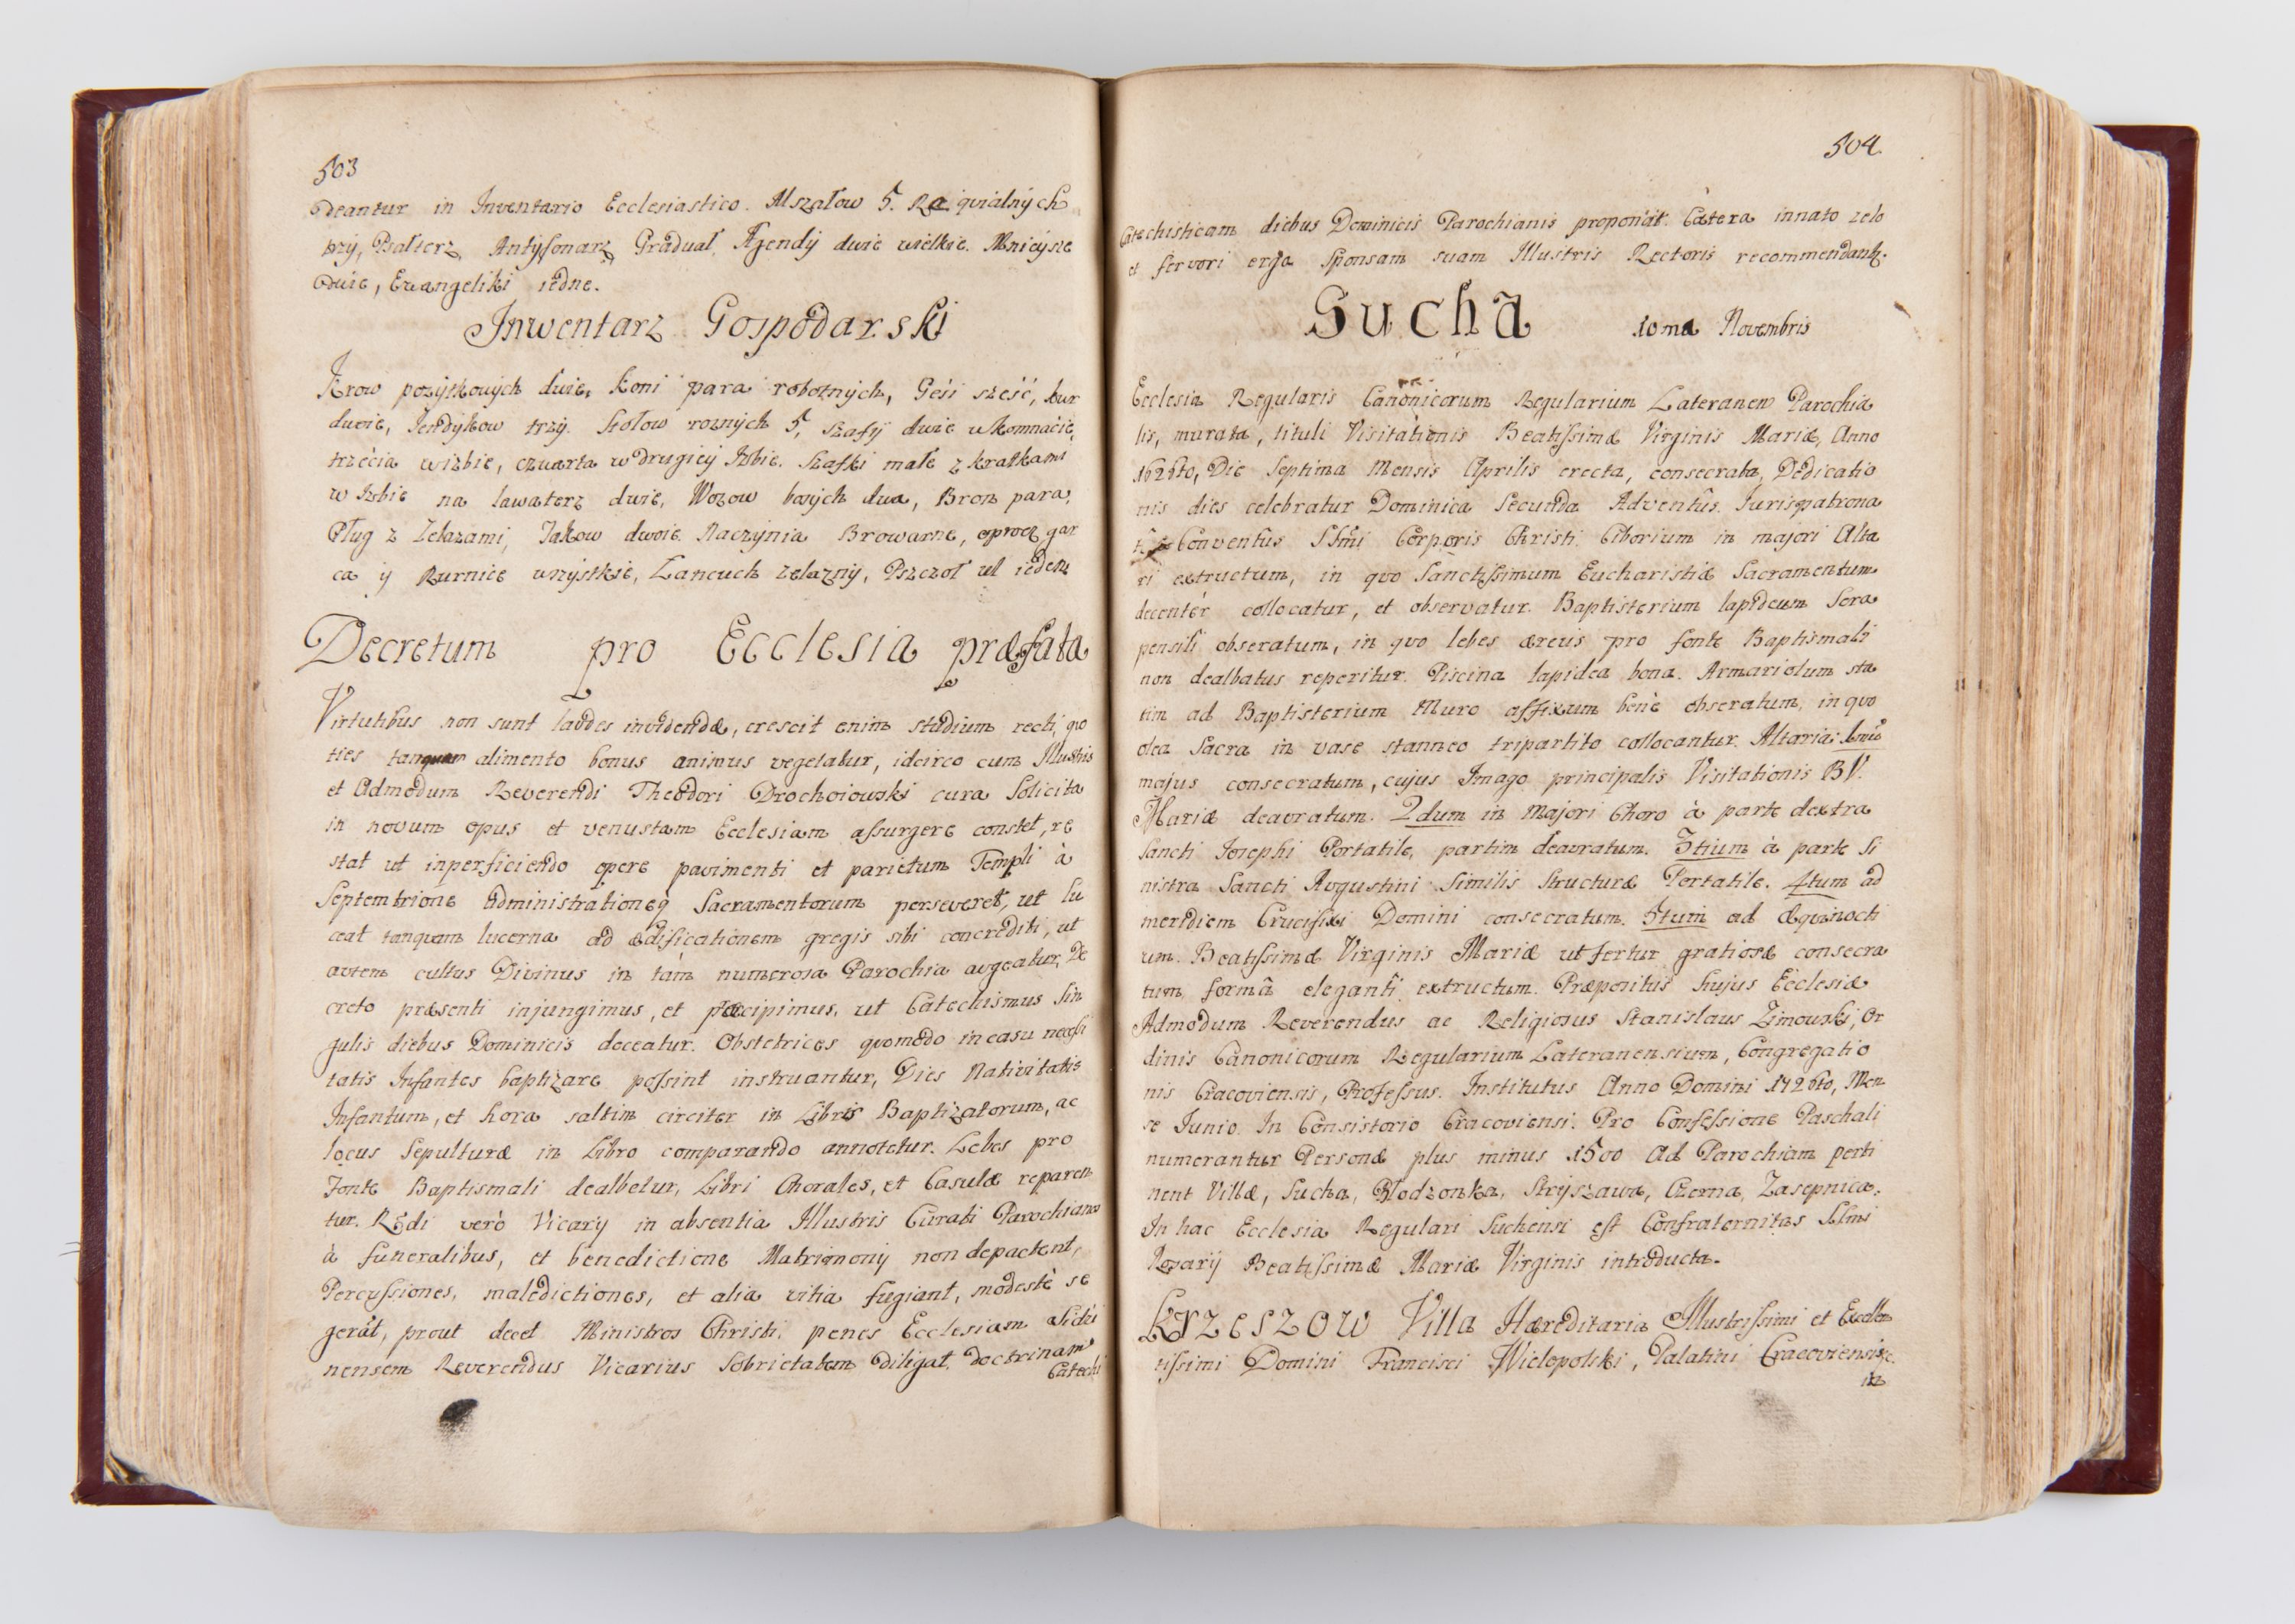 503
deantur in Inventario Ecclesiastico. Mszałow 5. Requialnych
trzy, Psałterz, Antyfonarz, Graduał, Agendy dwie wielkie. Mnieysze
dwie, Ewangeliki iedne.
Inwentarz Gospodarski
Krow pozytkowych dwie, koni para robotnych, Gesi sześć, kur
dwoie, Jendykow trzy. Stołow roznych 5, szafy dwie w komnacie,
trzecia w izbie, czwarta w drugiey Izbie. Szafki małe z kratkami
w Izbie na lawaterz dwie, Wozow bosych dwa, Bron para,
Pług z Zelazami, Jakow dwoie. Naczynia Browarne, oprocz gar
ca y Kurnice wszystkie, Lancuch zelazny, Pszczoł ul ieden
Decretum pro Ecclesia præfata
Virtutibus non sunt laudes invidendæ, crescit enim studium recti, quo
ties tanquam alimento bonus animus vegetatur, idcirco cum Illustris
et Admodum Reverendi Theodori Drochoiowski cura solicita
in novum opus et venustam Ecclesiam assurgere constet, re
stat ut in perficiendo opere pavimenti et parietum Templi à
Septemtrione administrationeq Sacramentorum perseveret, ut lu
ceat tanquam lucerna ad ædificationem gregis sibi concrediti, ut
autem cultus Divinus in tam numerosa Parochia augeatur, De
creto præsenti injungimus, et præcipimus, ut Catechismus Sin
gulis diebus Dominicis doceatur. Obstetrices quomodo in casu necessi
tatis Infantes baptizare possint instruantur, Dies Nativitatis
Infantum, et hora saltim circiter in Libris Baptizatorum, ac
locus Sepulturæ in Libro comparando annotetur. Lebes pro
Fonte Baptismali dealbetur, Libri Chorales, et Casulæ reparen
tur. Rdi verò Vicarij in absentia Illustris Curati Parochianos
à funeralibus, et benedictione Matrimonij non depactent,
Percussiones, maledictiones, et alia vitia fugiant, modestè se
gerāt, prout decet Ministros Christi, penes Ecclesiam
nensem Reverendus Vicarius Sobrietatem diligat, doctrinam
Catechi
504
Catechisticam diebus Dominicis Parochianis proponat. Cætera innato zelo
et fervori erga Sponsam suam Illustris Rectoris recommendantq.
Sucha 10ma Novembris
Ecclesia Regularis Canonicorum Regularium Lateranen Parochia
lis, murata, tituli Visitationis Beatissimæ Virginis Mariæ, Anno
1626to, Die Septima Mensis Aprilis erecta, consecrata, Dedicatio
nis dies celebratur Dominica Secunda Adventûs. Jurispatrona
tûs Conventûs SSmi Corporis Christi. Ciborium in majori Alta
ri extructum, in quo Sanctissimum Eucharistiæ Sacramentum
decenter collocatur, et observatur. Baptisterium lapideum Sera
pensili obseratum, in quo lebes æreus pro fonte Baptismali
non dealbatus reperitur. Piscina lapidea bona. Armariolum sta
tim ad Baptisterium Muro affixum benè obseratum, in quo
olea Sacra in vase stanneo tripartito collocantur. Altaria: 1mū
majus consecratum, cujus Imago principalis Visitationis B V.
Mariæ deauratum. 2dum in Majori Choro à parte dextra
Sancti Josephi Portatile, partim deauratum. 3tium à parte Si
nistra Sancti Augustini Similis Structuræ Portatile. 4tum ad
meridiem Crucifixi Domini consecratum. 5tum ad Æquinocti
um. Beatissimæ Virginis Mariæ ut fertur gratiosæ consecra
tum, formâ eleganti extructum. Præpositus hujus Ecclesiæ
Admodum Reverendus ac Religiosus Stanislaus Zimowski, Or
dinis Canonicorum Regularium Lateranensium, Congregatio
nis Cracoviensis, Professus. Institutus Anno Domini 1726to, Men
se Junio. In Consistorio Cracoviensi. Pro Confessione Paschali
numerantur Personæ plus minus 1500 Ad Parochiam perti
nent Villæ, Sucha, Błodzonka, Stryszawa, Czerna, Zasepnica.
In hac Ecclesia Regulari Suchensi est Confraternitas SSmi
Rosarij Beatissimæ Mariæ Virginis introducta.
Krzeszow Villa Hæreditaria Illustrissimi et Excellen
tissimi Domini Francisci Wielopolski, Palatini Cracoviensis,
in